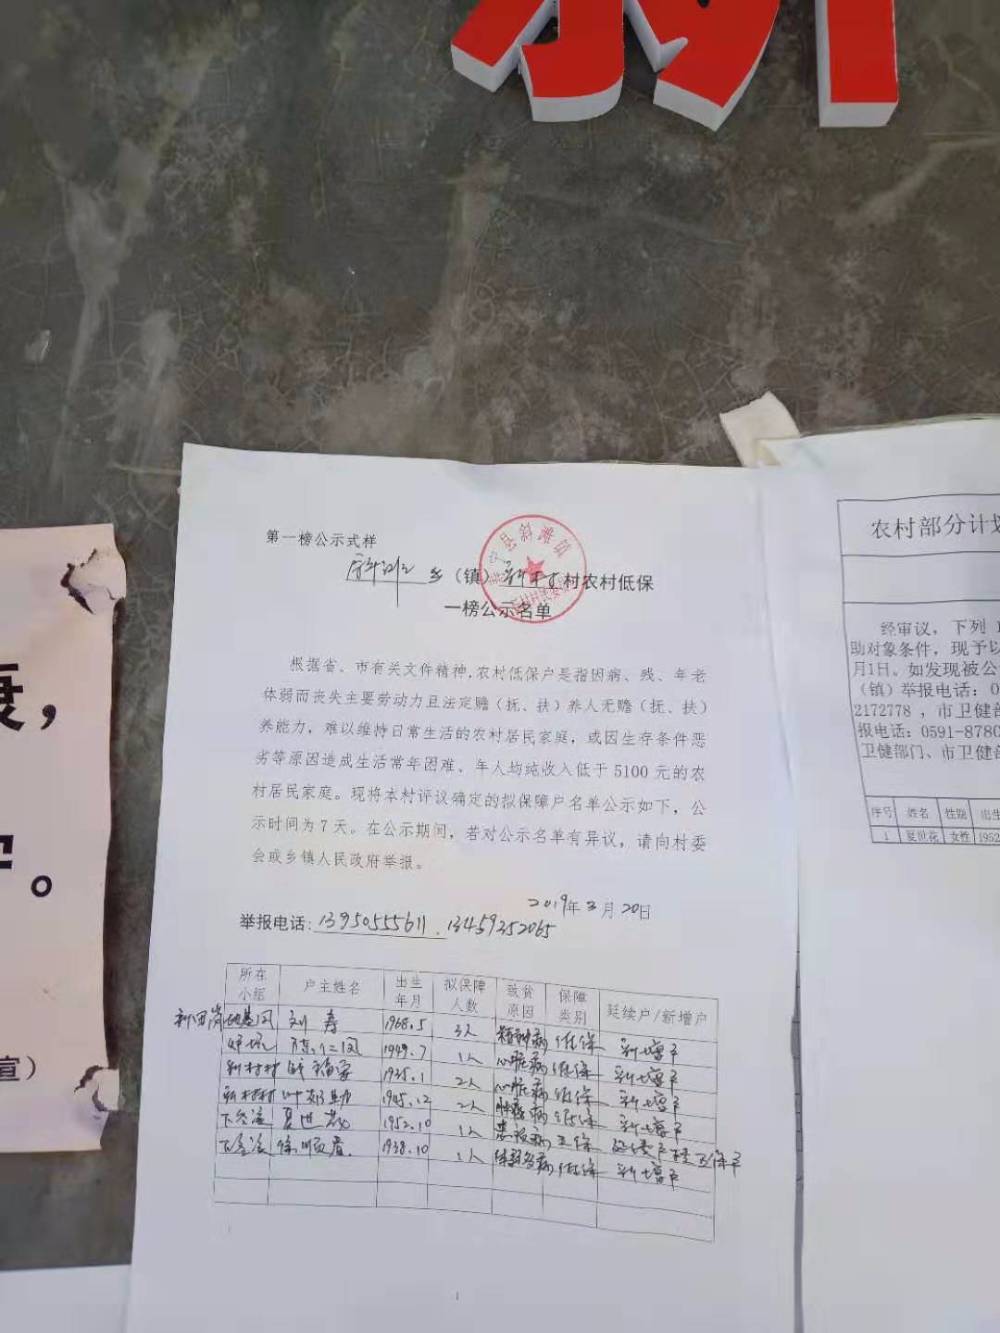 第一榜公示式样
乡（镇）新村村农村低保
一榜公示名单
寿宁县斜滩镇
根据省、市有关文件精神,农村低保户是指因病、残、年老
体弱而丧失主要劳动力且法定赡（抚、扶）养人无赡（抚、扶）
养能力，难以维持日常生活的农村居民家庭，或因生存条件恶
劣等原因造成生活常年困难、年人均纯收入低于5100元的农
村居民家庭。现将本村评议确定的拟保障户名单公示如下，公
示时间为7天。在公示期间，若对公示名单有异议，请向村委
会或乡镇人民政府举报。
2019年3月20日
举报电话：13950555611.13459252065
所在小组 户主姓名 出生年月 拟保障人数 致贫原因 保障类别 延续户/新增户
刘寿 1968.5 3人 精神病 低保 新增户
1949.7 1人 心脏病 低保 新增户
新村村 1935.1 2人 心脏病 低保 新增户
新村村 叶 助 1945.12 2人 病 低保 新增户
夏世花 1952.10 1人 病 五保 延续户 五保户
徐顺 1938.10 1人 病 低保 新增户
农村部分计划
经审议，下列
助对象条件，现予以
月1日。如发现被公
（镇）举报电话：0
2172778，市卫健
报电话：0591-8780
卫健部门、市卫健
序号 姓名 性别 出生
1 夏世花 女性 1952
，
。
宣）